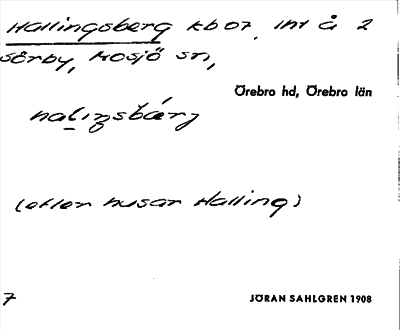 Hallingsberg kb 07. Int å 2
Sörby, Mosjö sn,
Örebro hd, Örebro län
(efter husar Halling)
7
JÖRAN SAHLGREN 1908